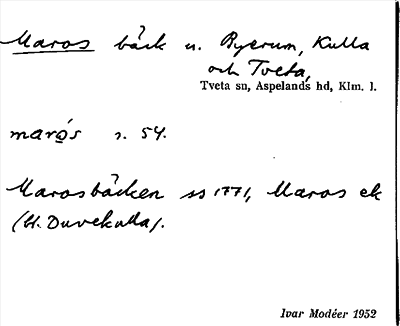 Maros bäck u. Ryerum, Kulla
och Tveta,
Tveta sn, Aspelands hd, Klm. l.
marǫ́s s. 54.
Marosbäcken ss 1771, Maros ek
(H. Duvekulla).
Ivar Modéer 1952